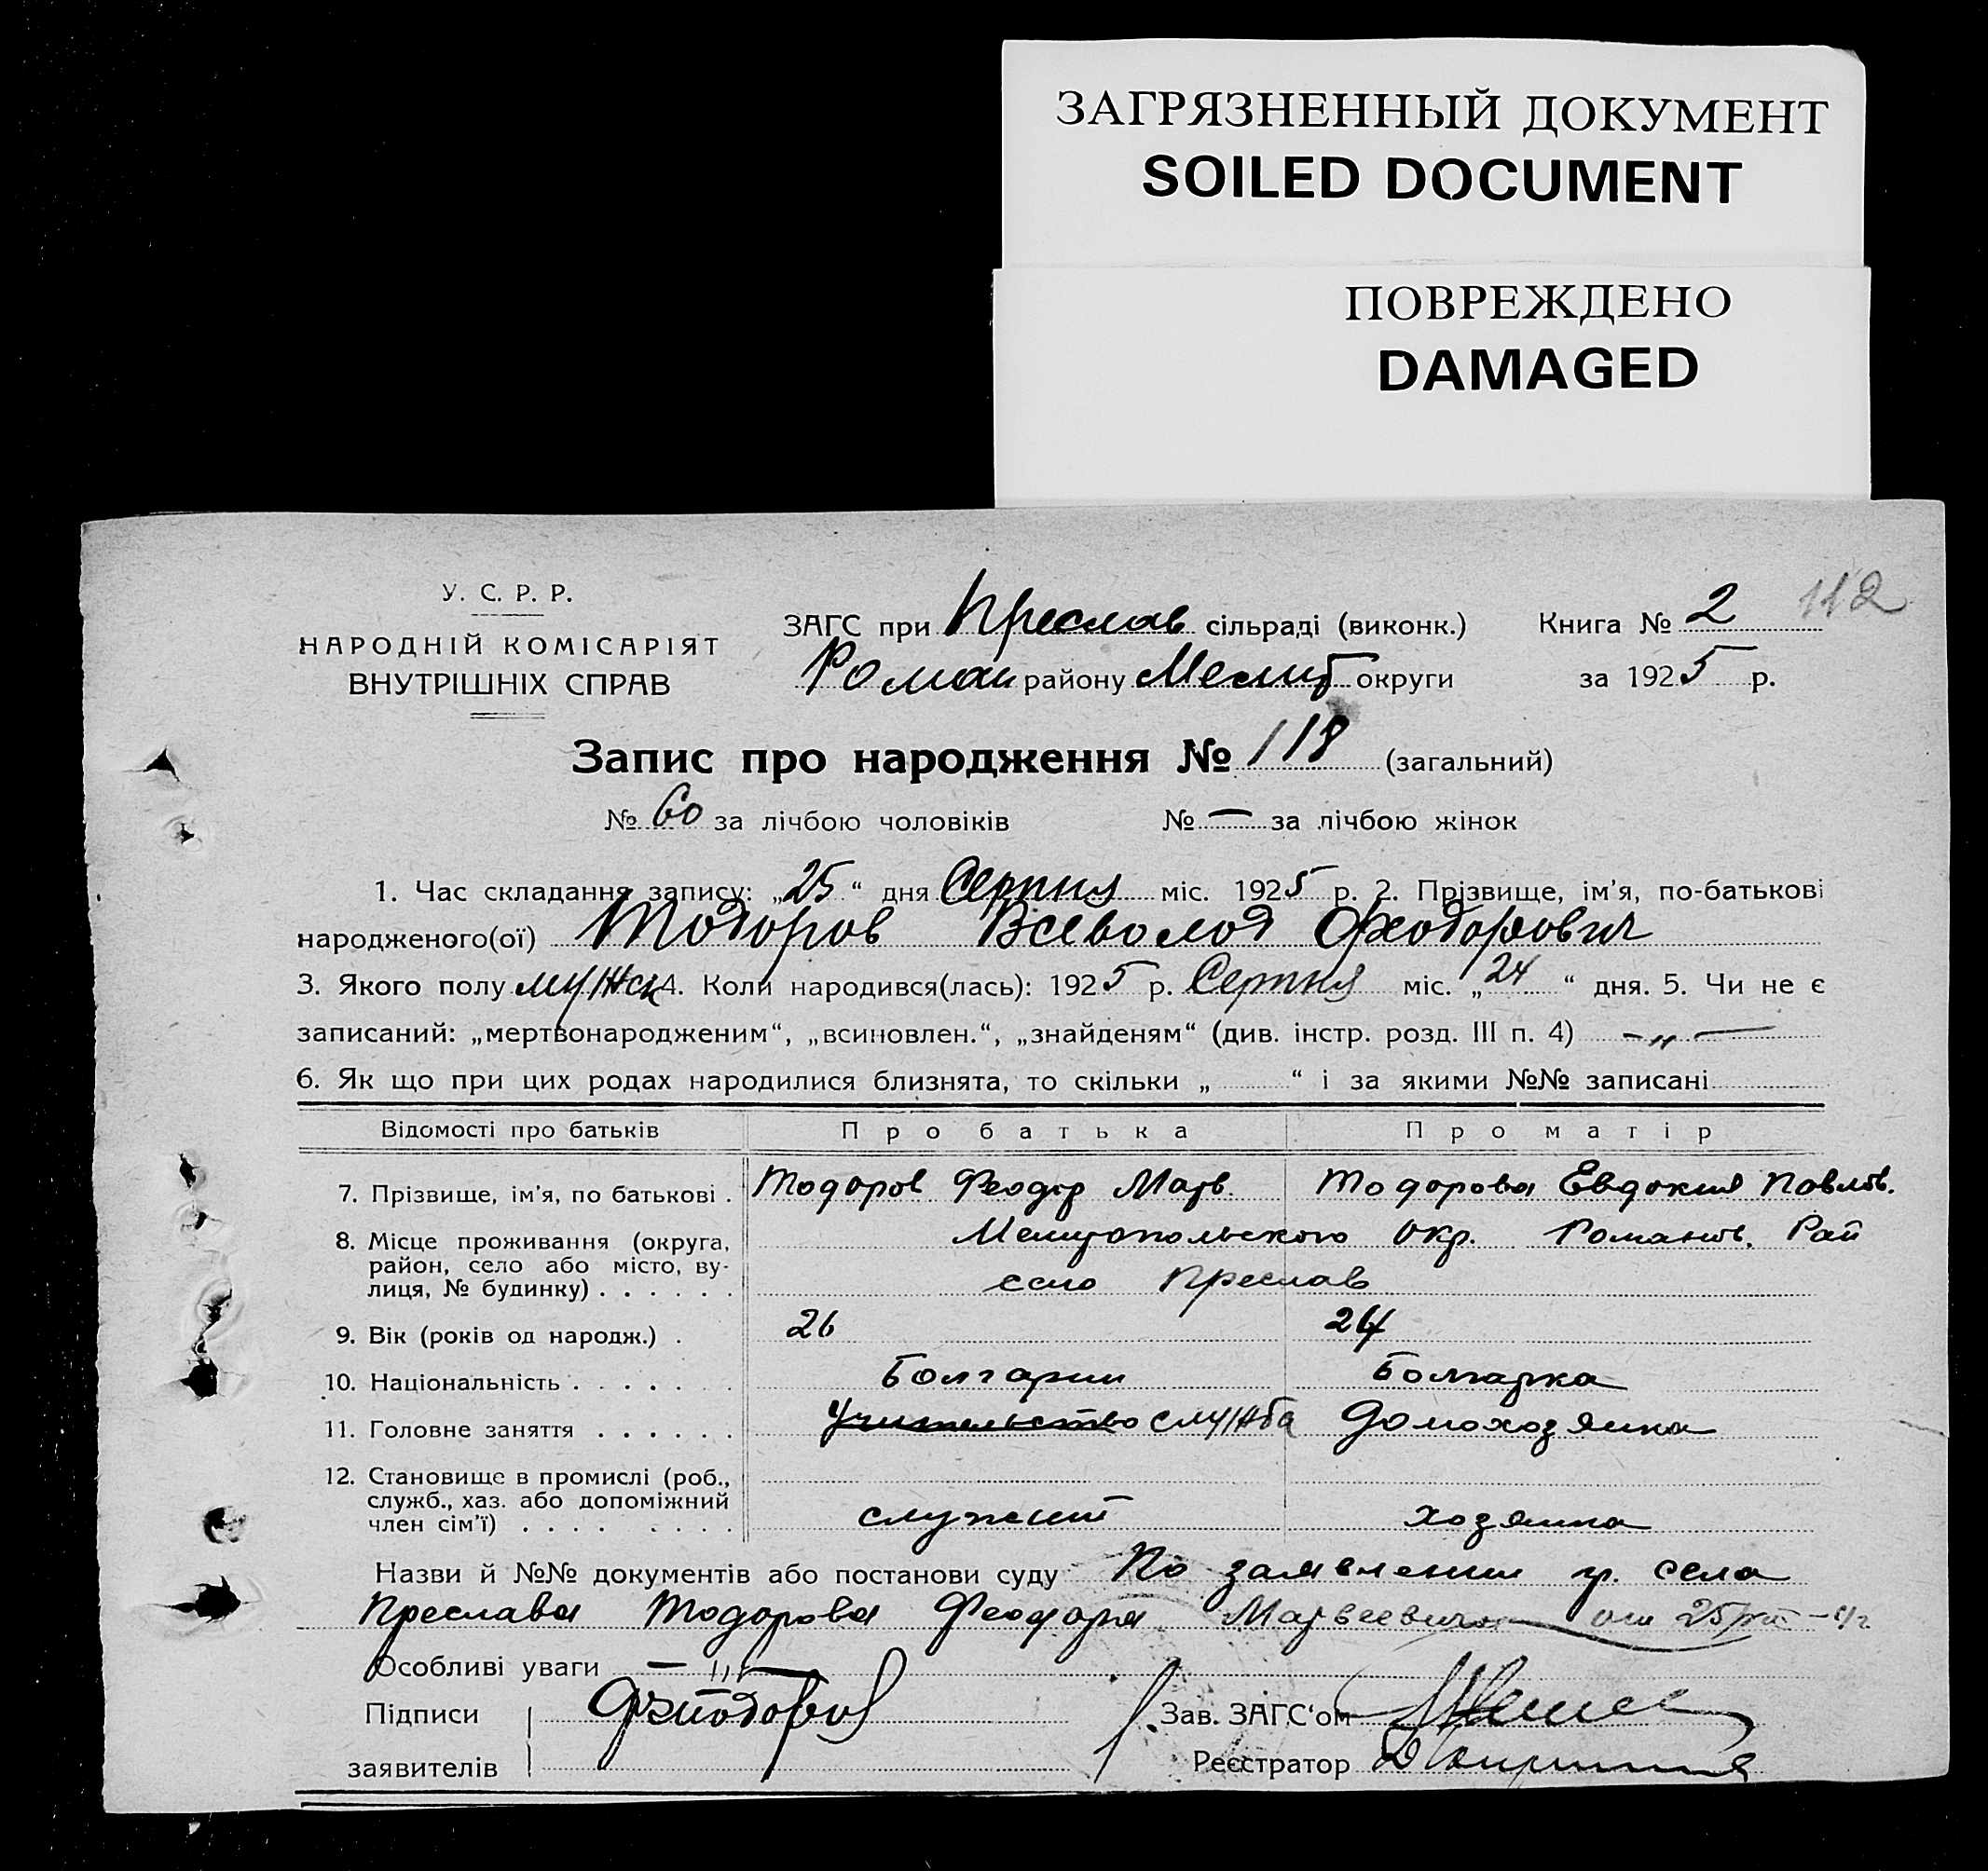 ЗАГРЯЗНЕННЫЙ ДОКУМЕНТ
SOILED DOCUMENT
ПОВРЕЖДЕНО
DAMAGED
112
У. С. Р. Р.
НАРОДНІЙ КОМІСАРІЯТ
ВНУТРІШНІХ СПРАВ
ЗАГС при Преслав сільраді (виконк.) Книга № 2
Роман району Мелит округи за 1925 р.
Запис про народження № 118 (загальний)
№ 60 за лічбою чоловіків № — за лічбою жінок
1. Час складання запису: „25“ дня Серпня міс. 1925 р. 2. Прізвище, ім’я, по-батькові
народженого(ої) Тодоров Всеволод Феодорович
3. Якого полу мужск 4. Коли народився(лась): 1925 р. Серпня міс. „24“ дня. 5. Чи не є
записаний: „мертвонародженим“, „всиновлен.“, „знайденям“ (див. інстр. розд. III п. 4) -„-
6. Як що при цих родах народилися близнята, то скільки „ “ і за якими №№ записані
Відомості про батьків Про батька Про матір
7. Прізвище, ім’я, по батькові . Тодоров Феодор Матв. Тодорова Евдокия Павлов.
8. Місце проживання (округа, Мелитопольского Окр. Романов. Рай
район, село або місто, ву-
лиця, № будинку) . . . . . . село Преслав
9. Вік (років од народж.) . 26 24
10. Національність . . . . . . Болгарин Болгарка
11. Головне заняття . . . . . . Учительство служба Домохозяйка
12. Становище в промислі (роб.,
служб., хаз. або допоміжний
член сім’ї) . . . . . . . . служит хозяйка
Назви й №№ документів або постанови суду По заявлении гр. села
Преслава Тодорова Феодора Матвеевича от 25/VIII - с/г
Особливі уваги — „ —
Підписи ФТодоров Зав. ЗАГС‘ом
заявителів Реєстратор